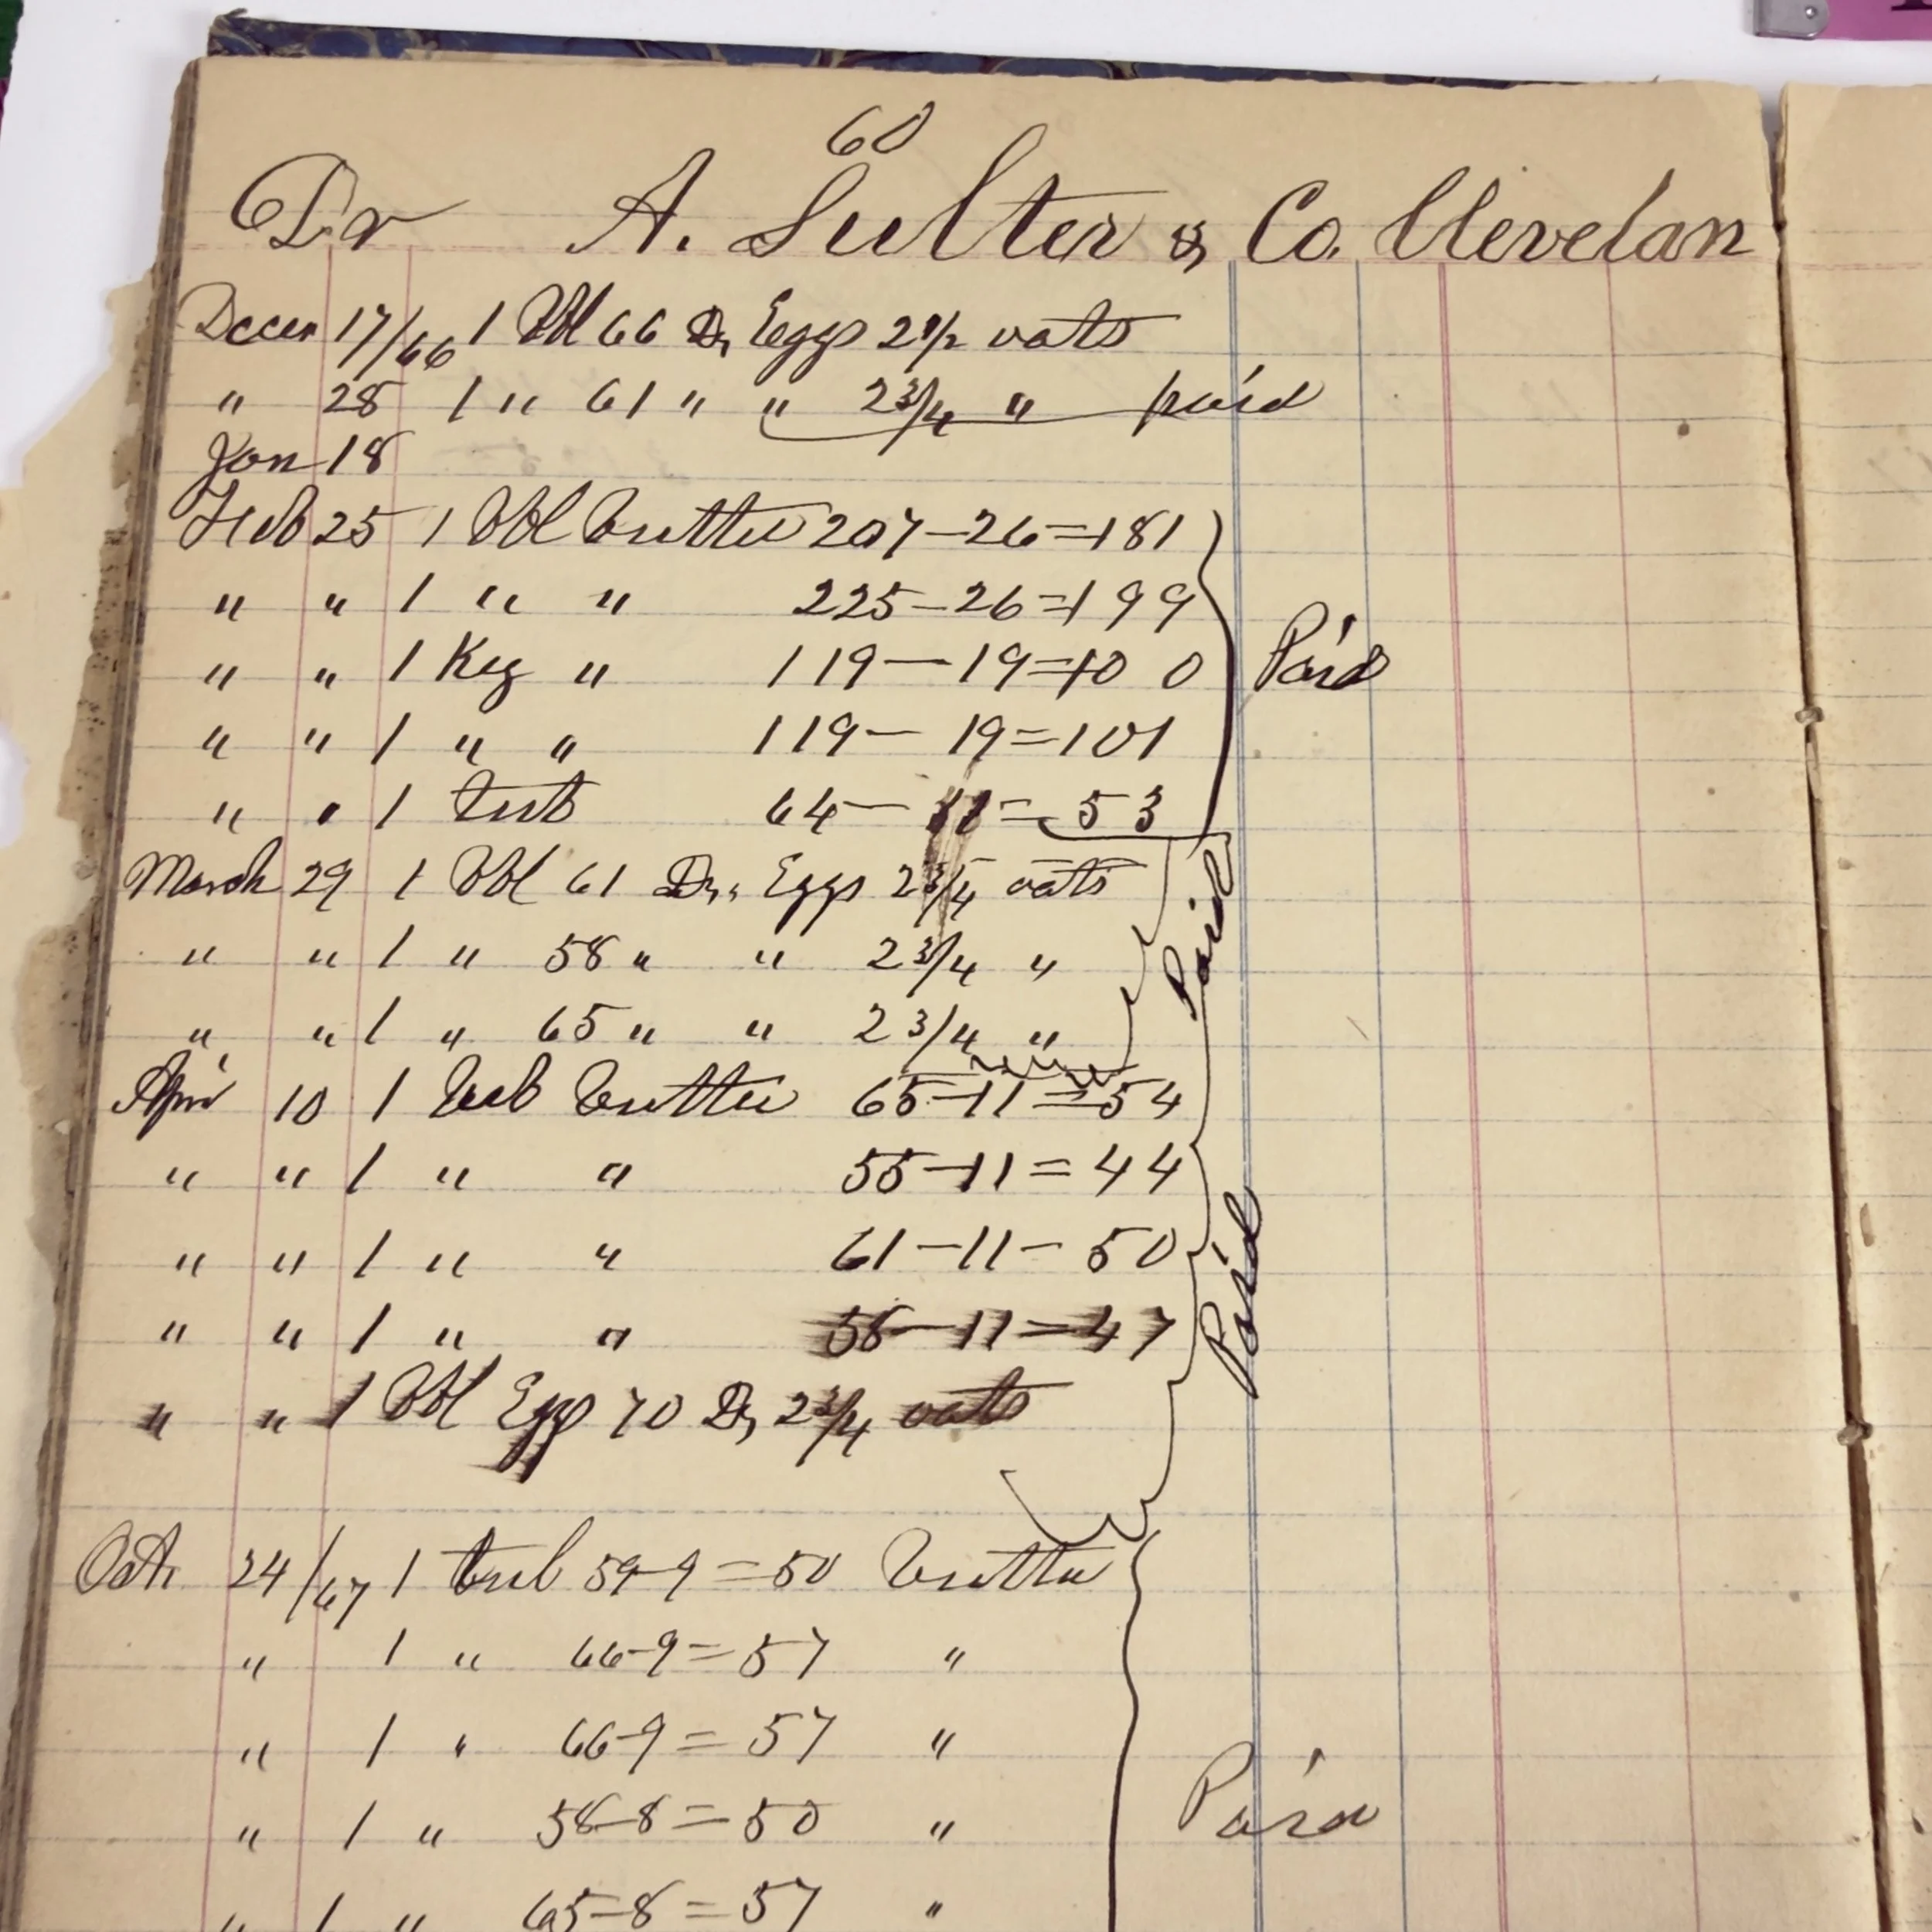 60
Dr A. Sulter & Co. Clevelan
Decem 17/66 1 Bbl 66 Dz Eggs 2 1/2 oats
" 28 1 " 61 " " 2 3/4 " paid
Jan 18
Feb 25 1 Bbl Butter 207-26=181
" " 1 " " 225-26=199
" " 1 Keg " 119-19=100
" " 1 " " 119-19=101
" " 1 tub 64-11=53
Paid
March 29 1 Bbl 61 Dz. Eggs 2 3/4 oats
" " 1 " 58 " " 2 3/4 "
" " 1 " 65 " " 2 3/4 "
Paid
Apri 10 1 tub Butter 65-11=54
" " 1 " " 55-11=44
" " 1 " " 61-11-50
" " 1 " " 58-11=47
" " 1 Bbl Eggs 70 Dz 2 3/4 oats
Paid
Octr 24/67 1 tub 59-9=50 Butter
" 1 " 66-9=57 "
" 1 " 66-9=57 "
" 1 " 58-8=50 "
" 1 " 65-8=57 "
Paid